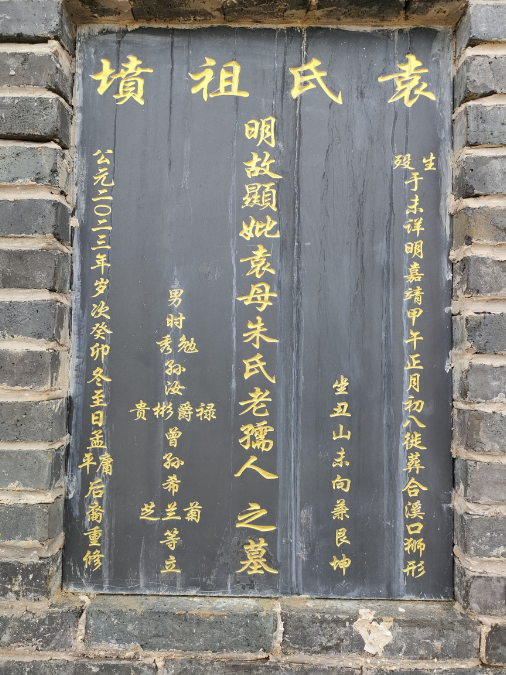 袁氏祖墳
生殁于未详明嘉靖甲午正月初八徙葬合溪口狮形
坐丑山未向兼艮坤
明故顯妣袁母朱氏老孺人之墓
男时勉秀孙汝禄爵彬贵曾孙希菊兰芝等立
公元二〇二三年岁次癸卯冬至日孟庸平后裔重修